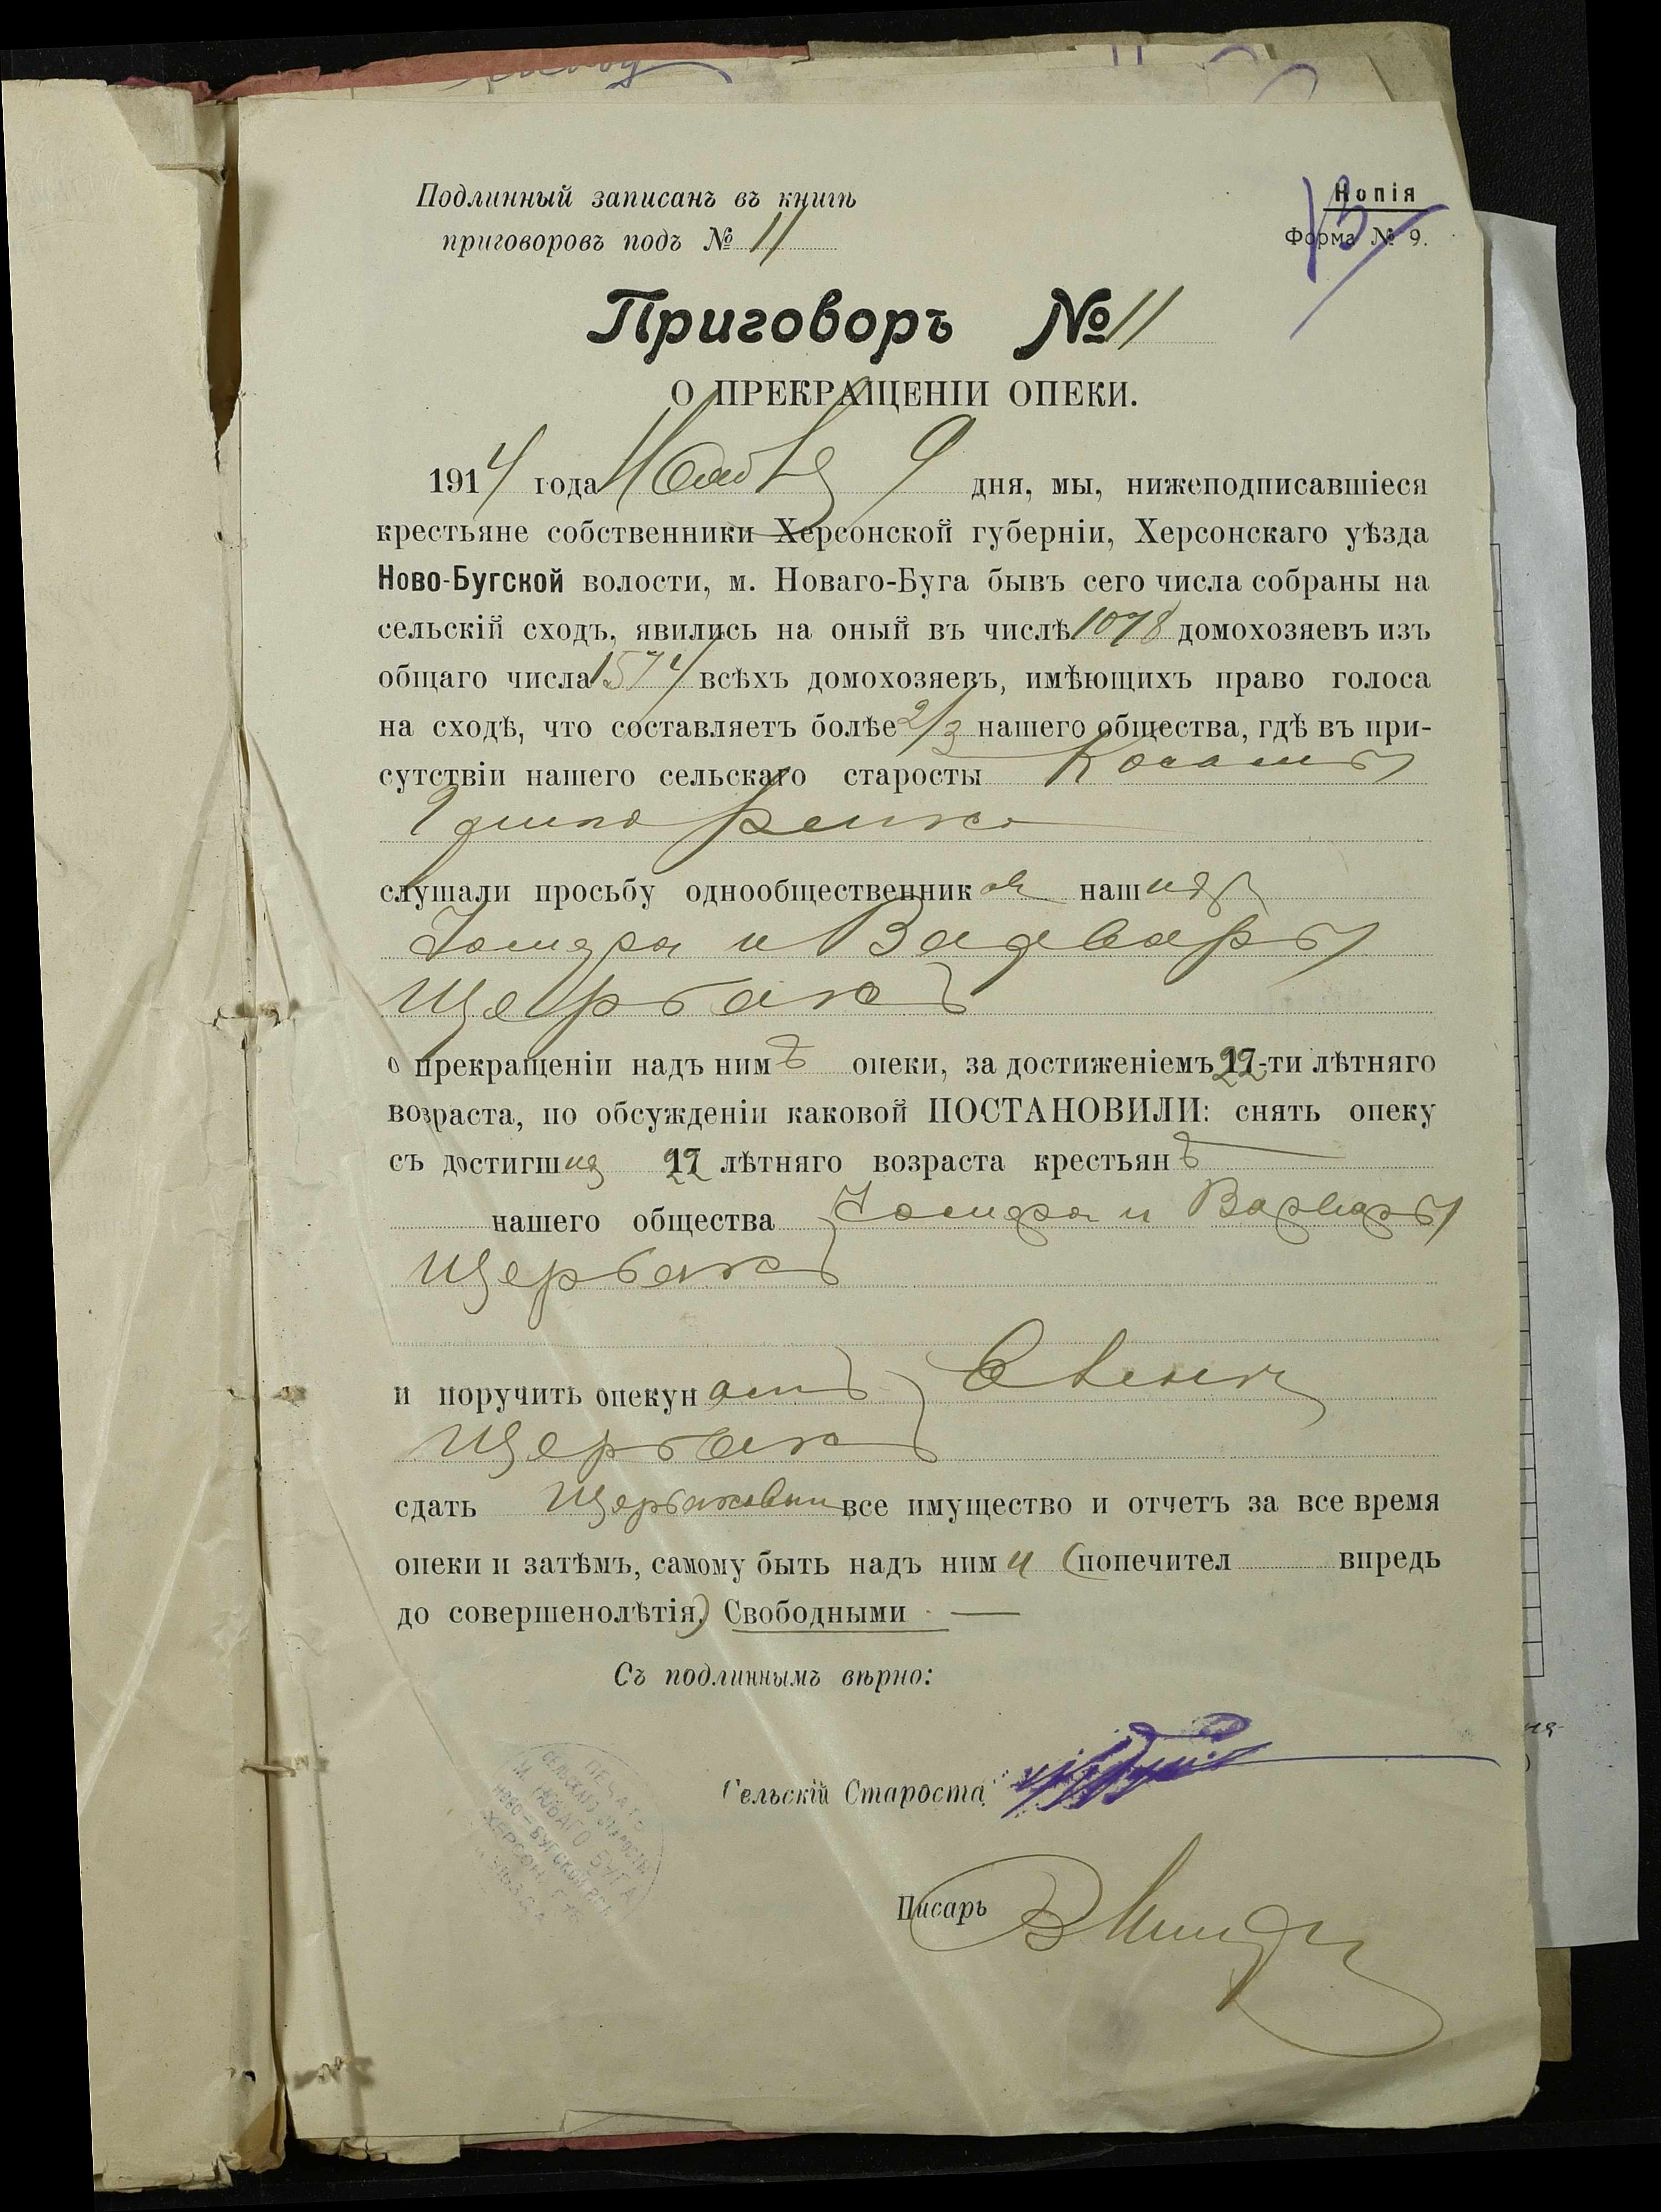 Подлинный записанъ въ книгѣ
приговоровъ подъ № 11
Копія
Форма № 9.
13
Приговоръ № 11
О ПРЕКРАЩЕНІИ ОПЕКИ.
1914 года Ноября 9 дня, мы, нижеподписавшіеся
крестьяне собственники Херсонской губерніи, Херсонскаго уѣзда
Ново-Бугской волости, м. Новаго-Буга бывъ сего числа собраны на
сельскій сходъ, явились на оный въ числѣ 1078 домохозяевъ изъ
общаго числа 1574 всѣхъ домохозяевъ, имѣющихъ право голоса
на сходѣ, что составляетъ болѣе 2/3 нашего общества, гдѣ въ при-
сутствіи нашего сельскаго старосты
слушали просьбу однообщественник наших
и Варвары
Щербакъ
о прекращеніи надъ ним опеки, за достиженіемъ 22-ти лѣтняго
возраста, по обсужденіи каковой ПОСТАНОВИЛИ: снять опеку
съ достигших 22 лѣтняго возраста крестьянъ
нашего общества и Варвары
Щербакъ
и поручить опекунамъ
Щербакъ
сдать Щербаковым все имущество и отчетъ за все время
опеки и затѣмъ, самому быть надъ ним и (попечител впредь
до совершенолѣтія) Свободными —
Съ подлиннымъ вѣрно:
Сельскій Староста
Писарь
ПЕЧАТЬ
СЕЛЬСКАГО СТАРОСТЫ
М. НОВАГО БУГА
НОВО-БУГСКОЙ ВОЛ.
ХЕРСОН.
УѢЗДА